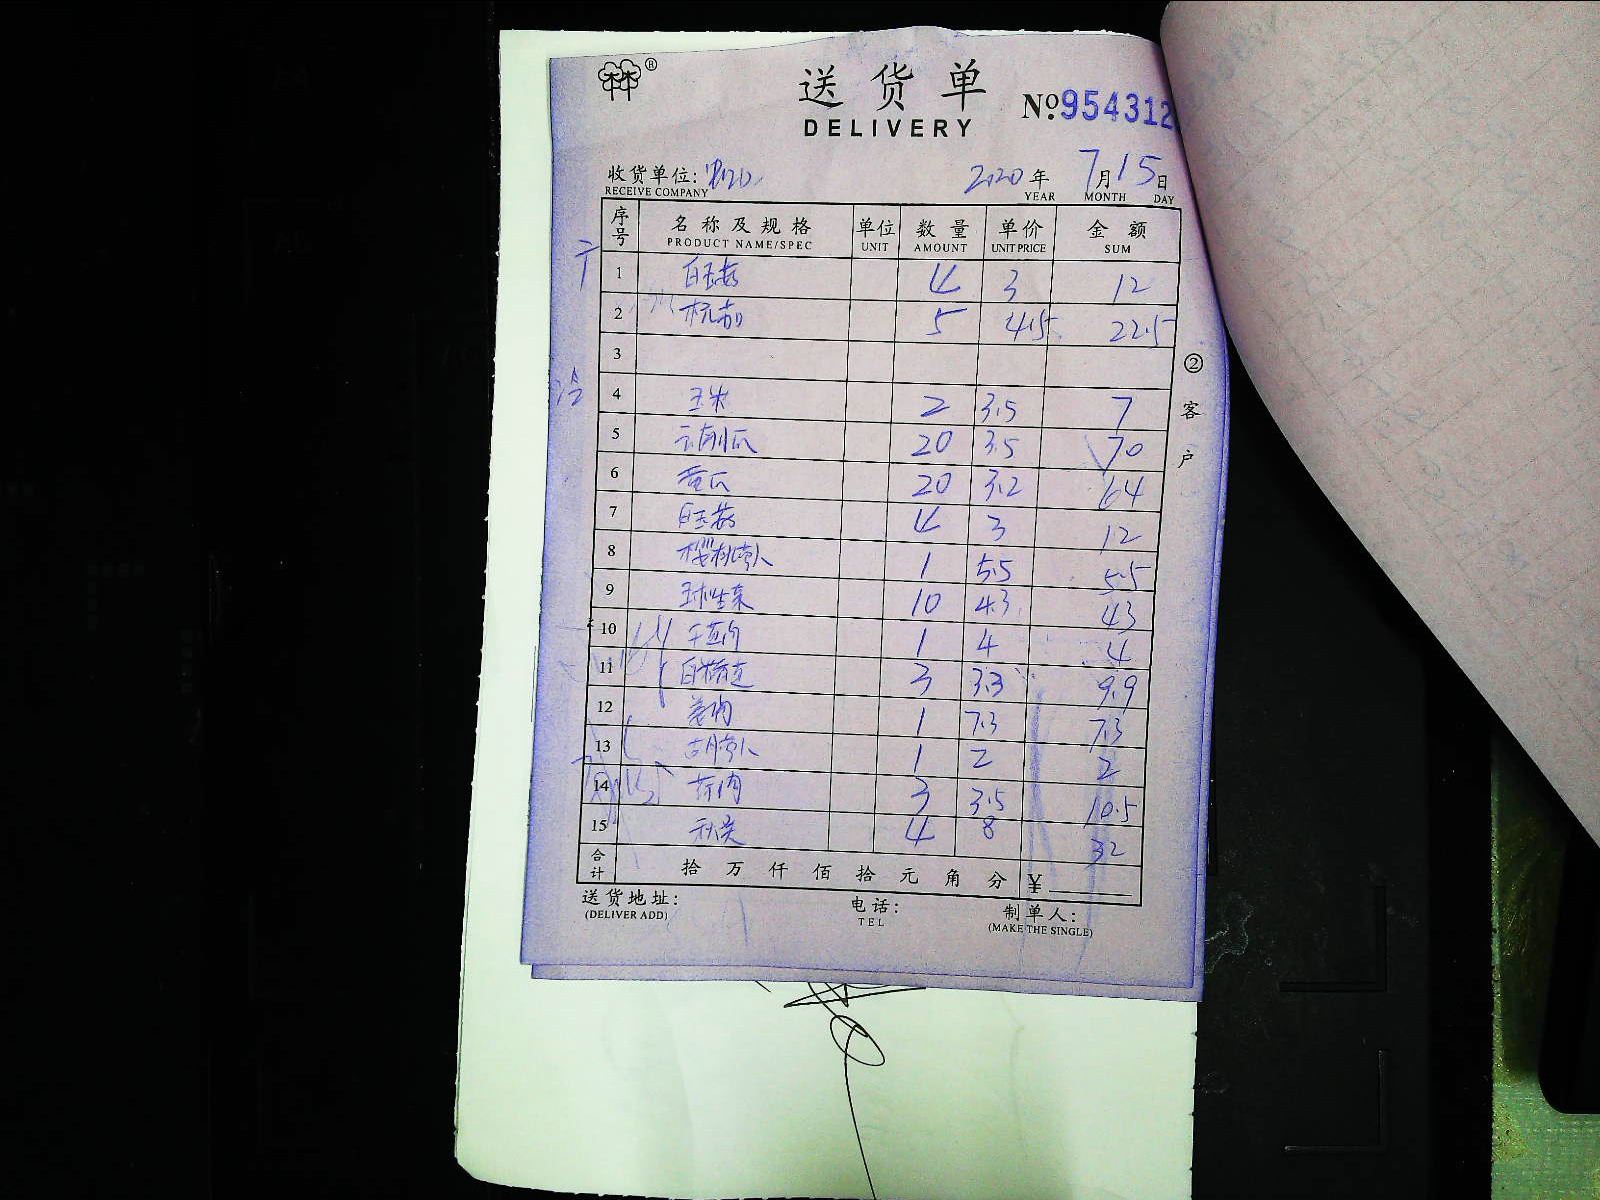 林林®
送货单
DELIVERY
No:954312
收货单位:
RECEIVE COMPANY
2020年 7月15日
YEAR MONTH DAY
序号 名称及规格 单位 数量 单价 金额
PRODUCT NAME/SPEC UNIT AMOUNT UNIT PRICE SUM
1 白玉菇 4 3 12
2 杭茄 5 4.5 22.5
3
冷
4 玉米 2 3.5 7
5 云南小瓜 20 3.5 70
6 黄瓜 20 3.2 64
7 白玉菇 4 3 12
8 樱桃萝卜 1 5.5 5.5
9 球生菜 10 4.3 43
10 1 4 4
11 3 3.3 9.9
12 姜肉 1 7.3 7.3
13 胡萝卜 1 2 2
14 3 3.5 10.5
15 秋葵 4 8 32
合计 拾 万 仟 佰 拾 元 角 分 ¥
送货地址:
(DELIVER ADD)
电话:
TEL
制单人:
(MAKE THE SINGLE)
② 客户